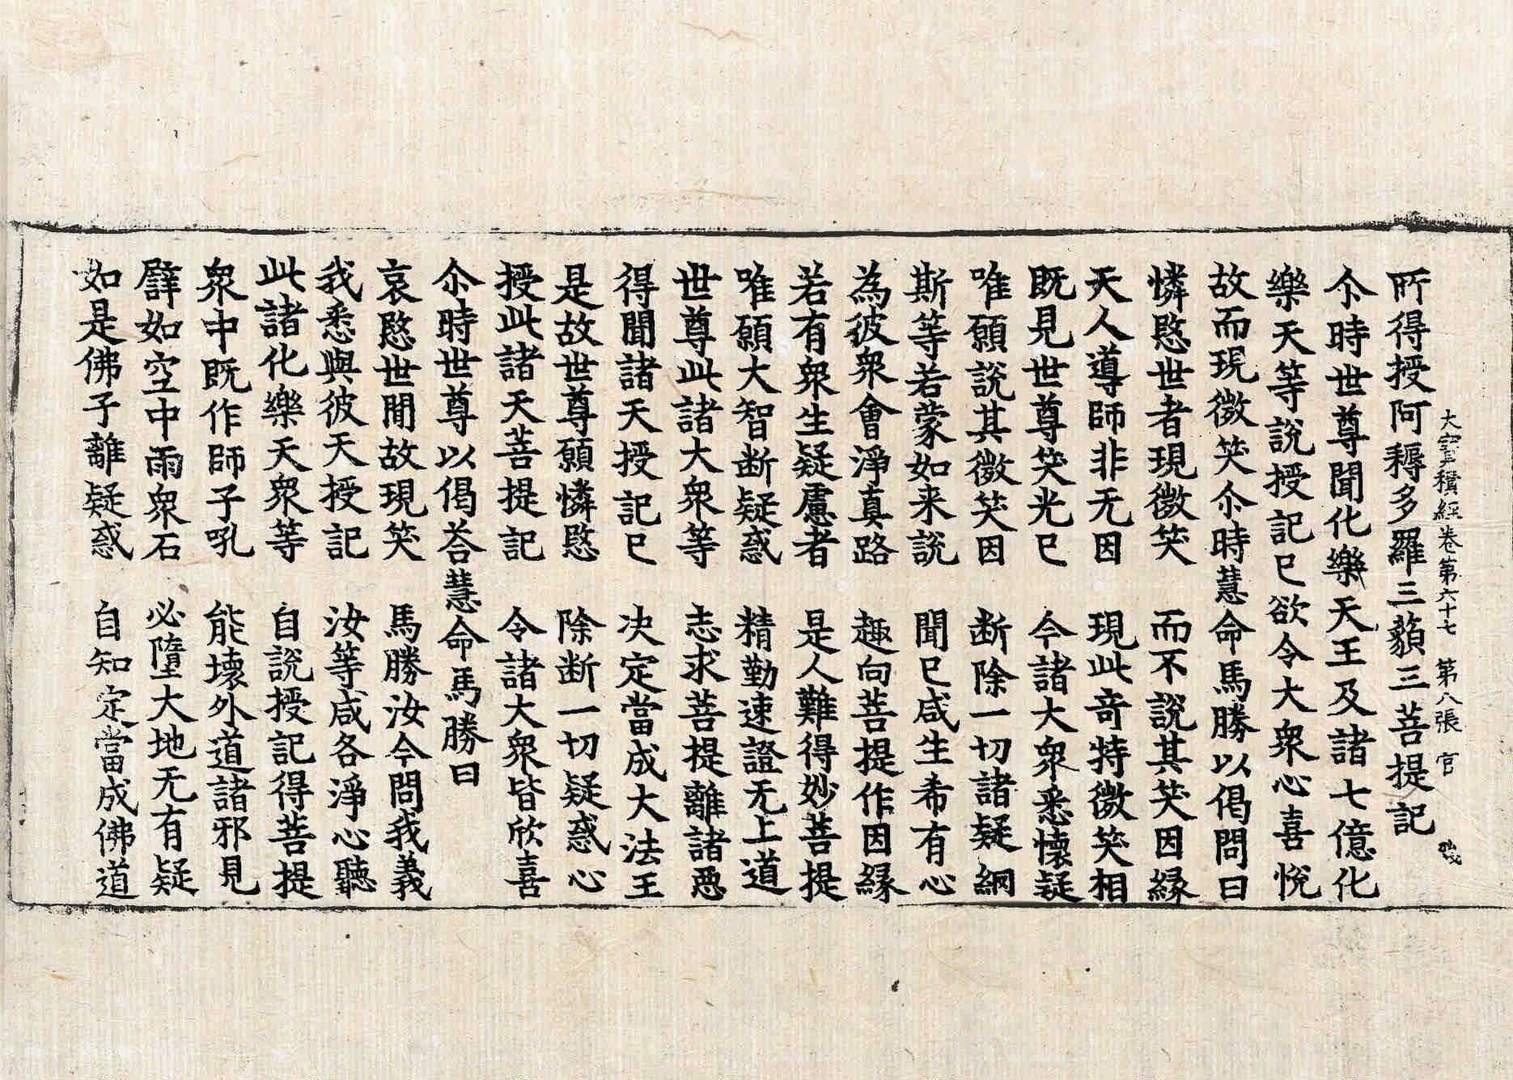 大寶積經卷第六十七　第八張　官
所得授阿耨多羅三藐三菩提記
尒時世尊聞化樂天王及諸七億化
樂天等說授記已欲令大衆心喜悅
故而現微笑尒時慧命馬勝以偈問曰
憐愍世者現微笑　而不說其笑因縁
天人導師非无因　現此奇特微笑相
既見世尊笑光已　今諸大衆悉懷疑
唯願說其微笑因　断除一切諸疑網
斯等若蒙如来說　聞已咸生希有心
為彼衆會淨真路　趣向菩提作因縁
若有衆生疑慮者　是人難得妙菩提
唯願大智断疑惑　精勤速證无上道
世尊此諸大衆等　志求菩提離諸惡
得聞諸天授記已　决定當成大法王
是故世尊願憐愍　除断一切疑惑心
授此諸天菩提記　令諸大衆皆欣喜
尒時世尊以偈荅慧命馬勝曰
哀愍世間故現笑　馬勝汝今問我義
我悉與彼天授記　汝等咸各淨心聽
此諸化樂天衆等　自說授記得菩提
衆中既作師子吼　能壞外道諸邪見
譬如空中雨衆石　必墮大地无有疑
如是佛子離疑惑　自知定當成佛道